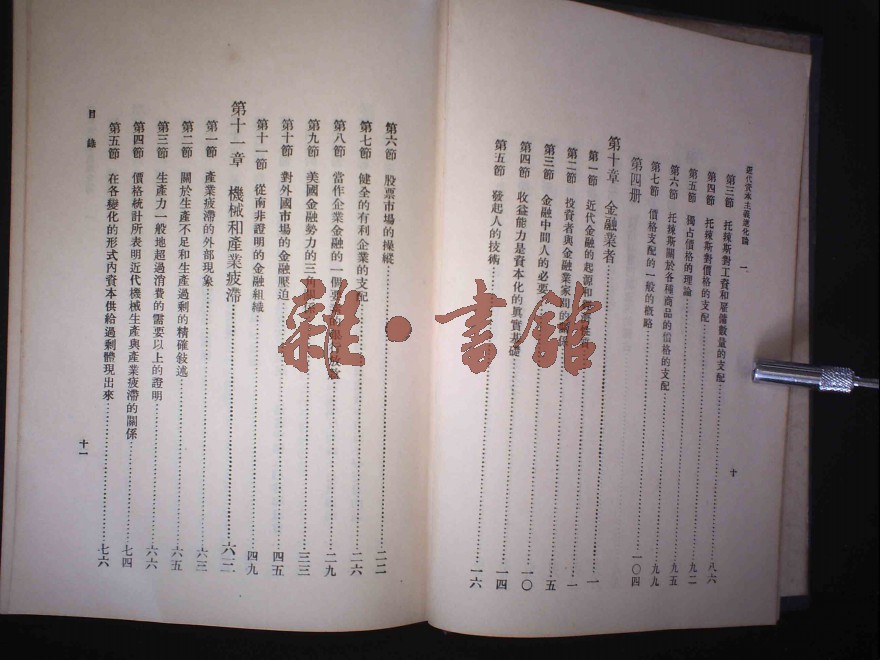 近代資本主義進化論 一
第三節 托辣斯對工資和雇傭數量的支配 八六
第四節 托辣斯對價格的支配 九二
第五節 獨占價格的理論 九五
第六節 托辣斯關於各種商品的價格的支配 九九
第七節 價格支配的一般的概略 一〇四
第四册
第十章 金融業者 一
第一節 近代金融的起源和 一
第二節 投資者與金融業家間的關係 五
第三節 金融中間人的必要 一〇
第四節 收益能力是資本化的眞實基礎 一四
第五節 發起人的技術 一六
十
第六節 股票市場的操縱 二二
第七節 健全的有利企業的支配 二六
第八節 當作企業金融的一個要 二九
第九節 美國金融勢力的三角 三三
第十節 對外國市場的金融壓迫 四五
第十一節 從南非證明的金融組織 四九
第十一章 機械和產業疲滯 六三
第一節 產業疲滯的外部現象 六三
第二節 關於生產不足和生產過剩的精確敍述 六五
第三節 生產力一般地超過消費的需要以上的證明 六六
第四節 價格統計所表明近代機械生產與產業疲滯的關係 七四
第五節 在各變化的形式內資本供給過剩體現出來 七六
目錄
十一
雜·書館